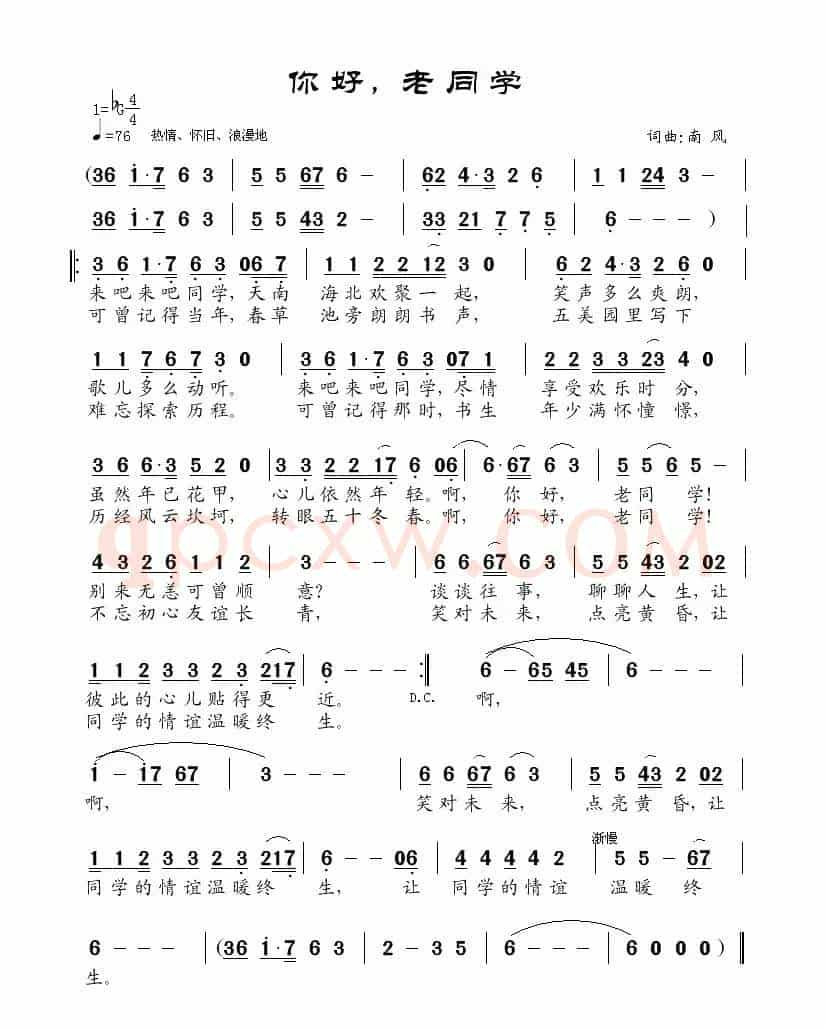 你好，老同学
1=♭G 4/4
♩=76 热情、怀旧、浪漫地 词曲:南 风
(36 i·7 6 3 | 5 5 67 6 － | 62 4·3 2 6 | 1 1 24 3 － |
36 i·7 6 3 | 5 5 43 2 － | 33 21 7 7 5 | 6 － － － ) |
‖: 3 6 1·7 6 3 06 7 | 1 1 2 2 12 3 0 | 6 2 4·3 2 6 0 |
来吧来吧同学,天南 海北欢聚一起, 笑声多么爽朗,
可曾记得当年,春草 池旁朗朗书声, 五美园里写下
1 1 7 6 7 3 0 | 3 6 1·7 6 3 07 1 | 2 2 3 3 23 4 0 |
歌儿多么动听。 来吧来吧同学,尽情 享受欢乐时分,
难忘探索历程。 可曾记得那时,书生 年少满怀憧憬,
3 6 6·3 5 2 0 | 3 3 2 2 17 6 06 | 6·67 6 3 | 5 5 6 5 － |
虽然年已花甲, 心儿依然年轻。啊, 你好, 老同学!
历经风云坎坷, 转眼五十冬春。啊, 你好, 老同学!
qpcxw.COM
4 3 2 6 1 1 2 | 3 － － － | 6 6 67 6 3 | 5 5 43 2 02 |
别来无恙可曾顺 意? 谈谈往事, 聊聊人生,让
不忘初心友谊长 青, 笑对未来, 点亮黄昏,让
1 1 2 3 3 2 3 217 | 6 － － － :‖ 6 － 65 45 | 6 － － － |
彼此的心儿贴得更 近。 D.C. 啊,
同学的情谊温暖终 生。
i － i7 67 | 3 － － － | 6 6 67 6 3 | 5 5 43 2 02 |
啊, 笑对未来, 点亮黄昏,让
渐慢
1 1 2 3 3 2 3 217 | 6 － － 06 | 4 4 4 4 2 | 5 5 － 67 |
同学的情谊温暖终 生, 让 同学的情谊 温暖终
6 － － － | (36 i·7 6 3 | 2 － 3 5 | 6 － － － | 6 0 0 0 ) ‖
生。